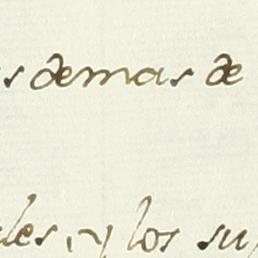 s demas de
des, y los su